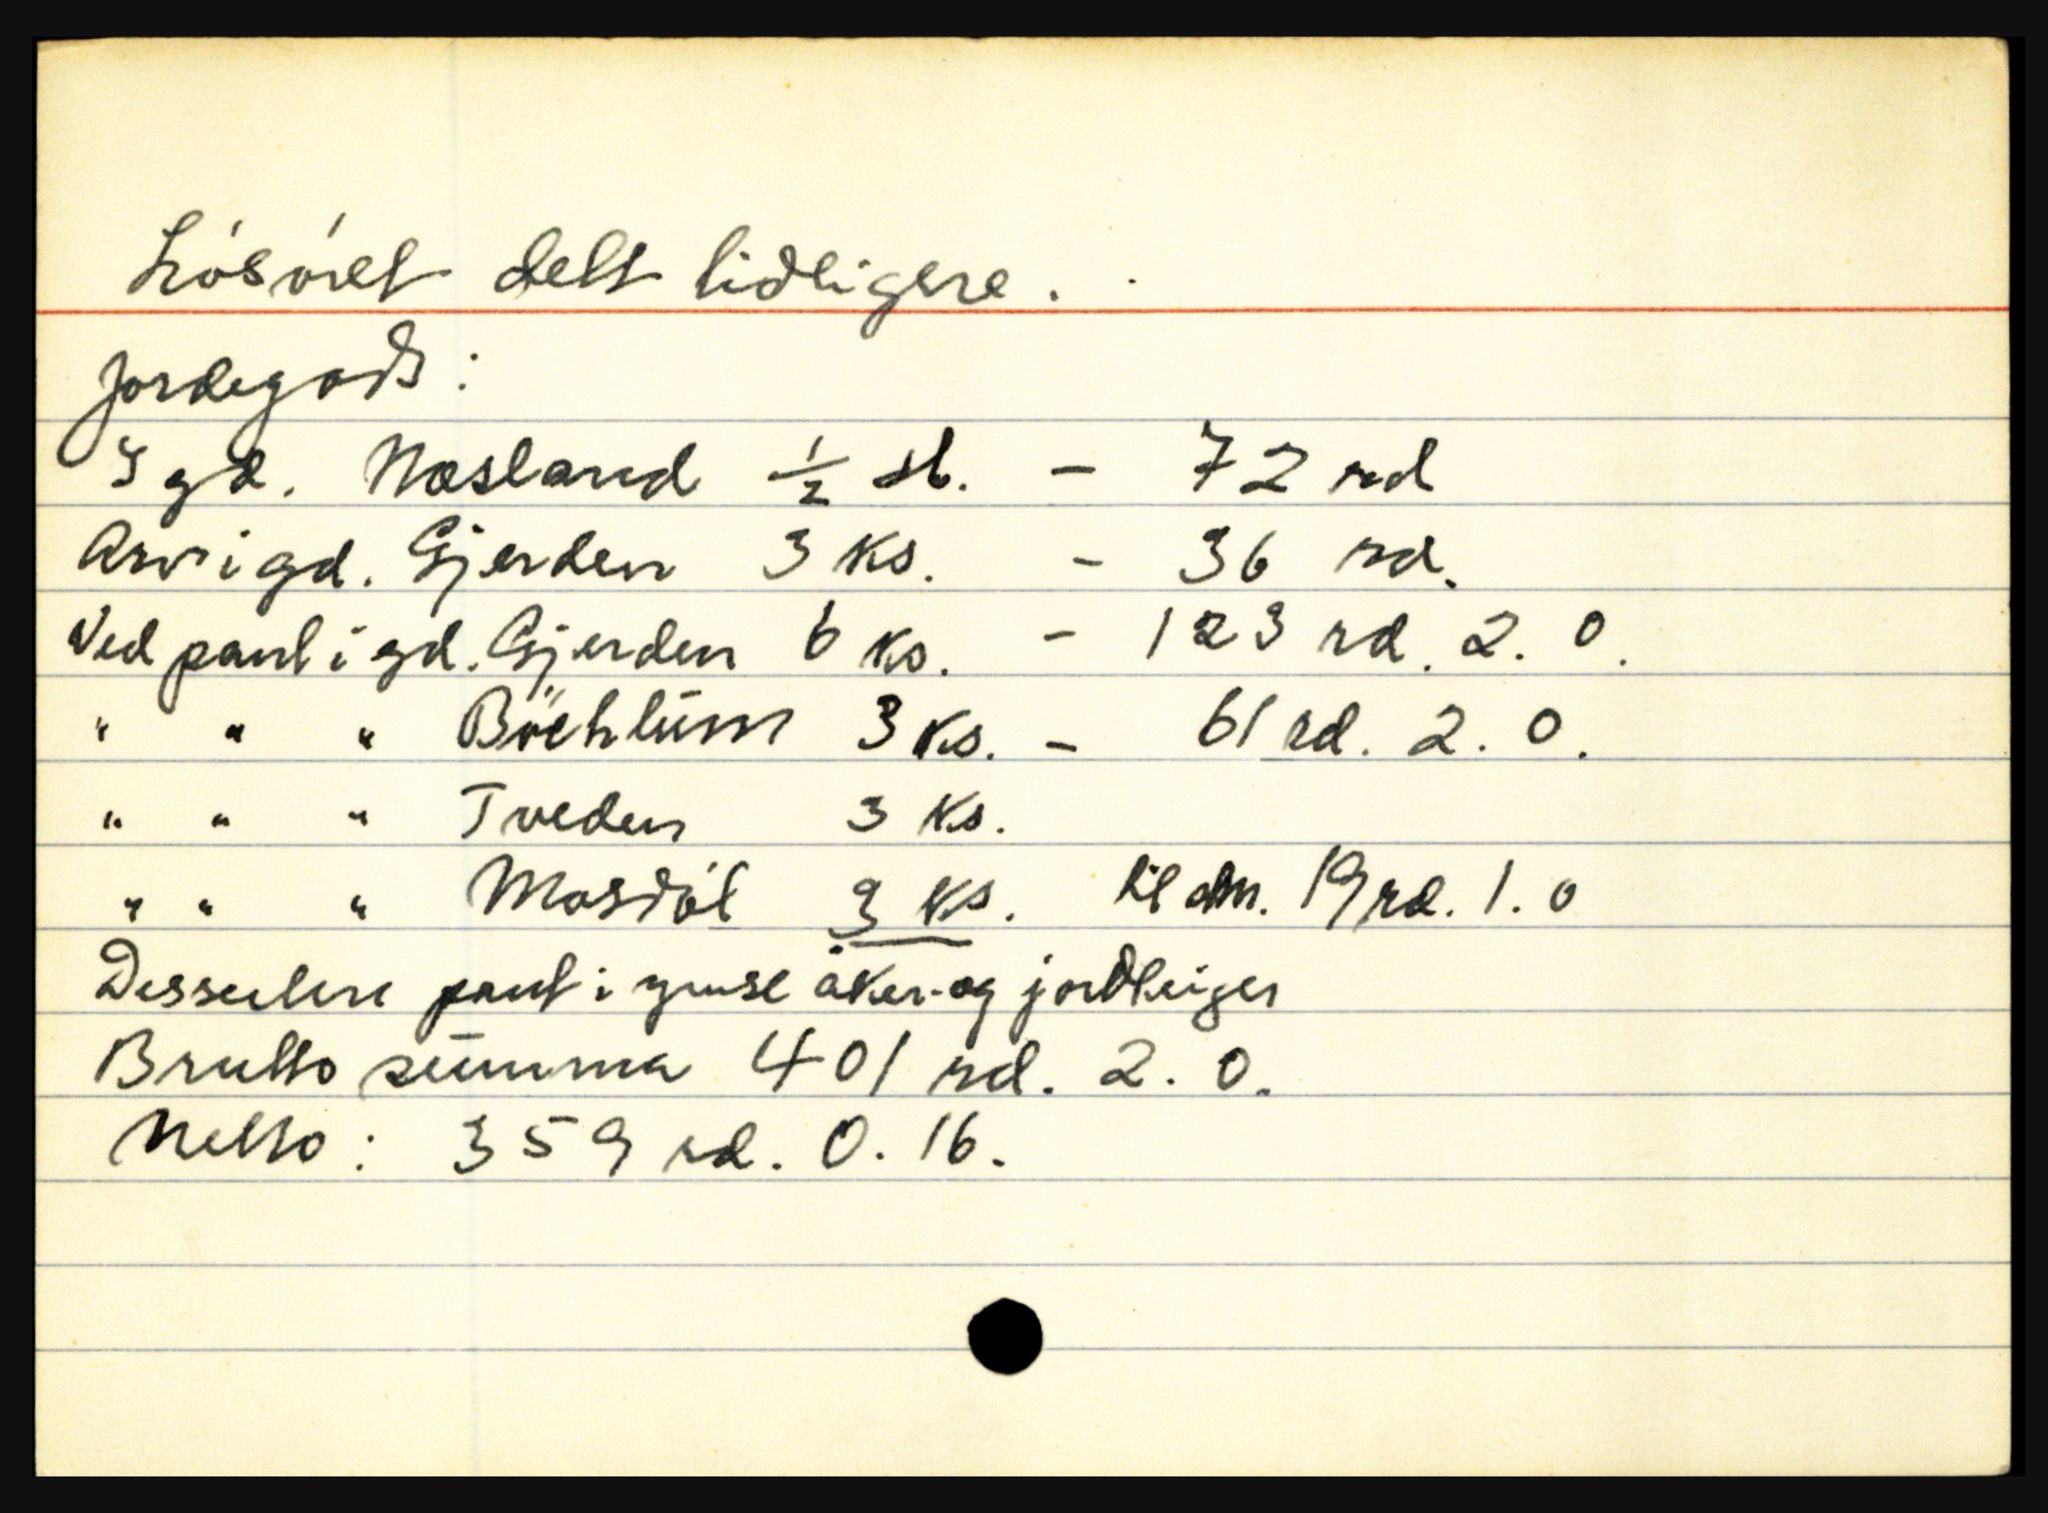 Lösöret delt tidligere.
Jordegods:
I gd. Næsland ½ sk. - 72 rd
Arv i gd. Gjerden 3 ks. - 36 rd.
Ved pant i gd. Gjerden 6 ks. - 123 rd. 2. 0.
" " " 3 ks. - 61 rd. 2. 0.
" " " Tveden 3 ks.
" " " Mosdöl 3 ks. til dm. 19 rd. 1. 0
Dessuten pant i åker- og jordteiger
Brutto summa 401 rd. 2. 0.
Netto: 359 rd. 0. 16.